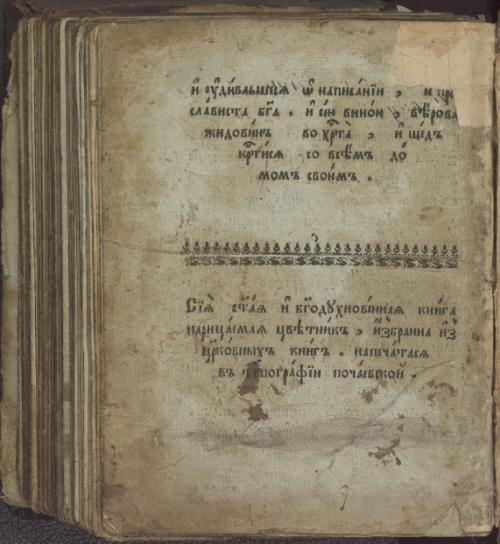 и҆ ᲂу҆диви́вшисѧ ѿ написа́нїи , и про
сла́виста бг҃а . и҆ се́ю вино́ю , вѣ́рова
жидови́нъ во хрⷭ҇та̀ , и҆ ше́дъ
крⷭ҇ти́сѧ со всѣ́мъ до́
момъ свои́мъ .
Сїѧ̀ ст҃а́ѧ и҆ бг҃одꙋхнове́ннаѧ кни́га
нарица́емаѧ цвѣ́тникъ , и҆збра́нна и҆з̾
цр҃ко́вныхъ кни́гъ . напеча́тасѧ
въ типогра́фїи поча́евской .